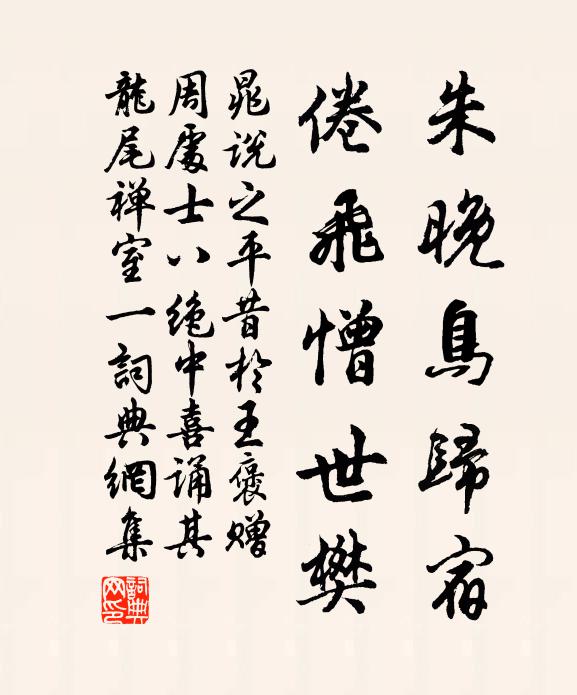 朱晚鳥歸宿
倦飛憎世樊
晁說之平昔於王褒贈
周處士八絶中喜誦其
龍尾禅室一詞典網集
詞典网印